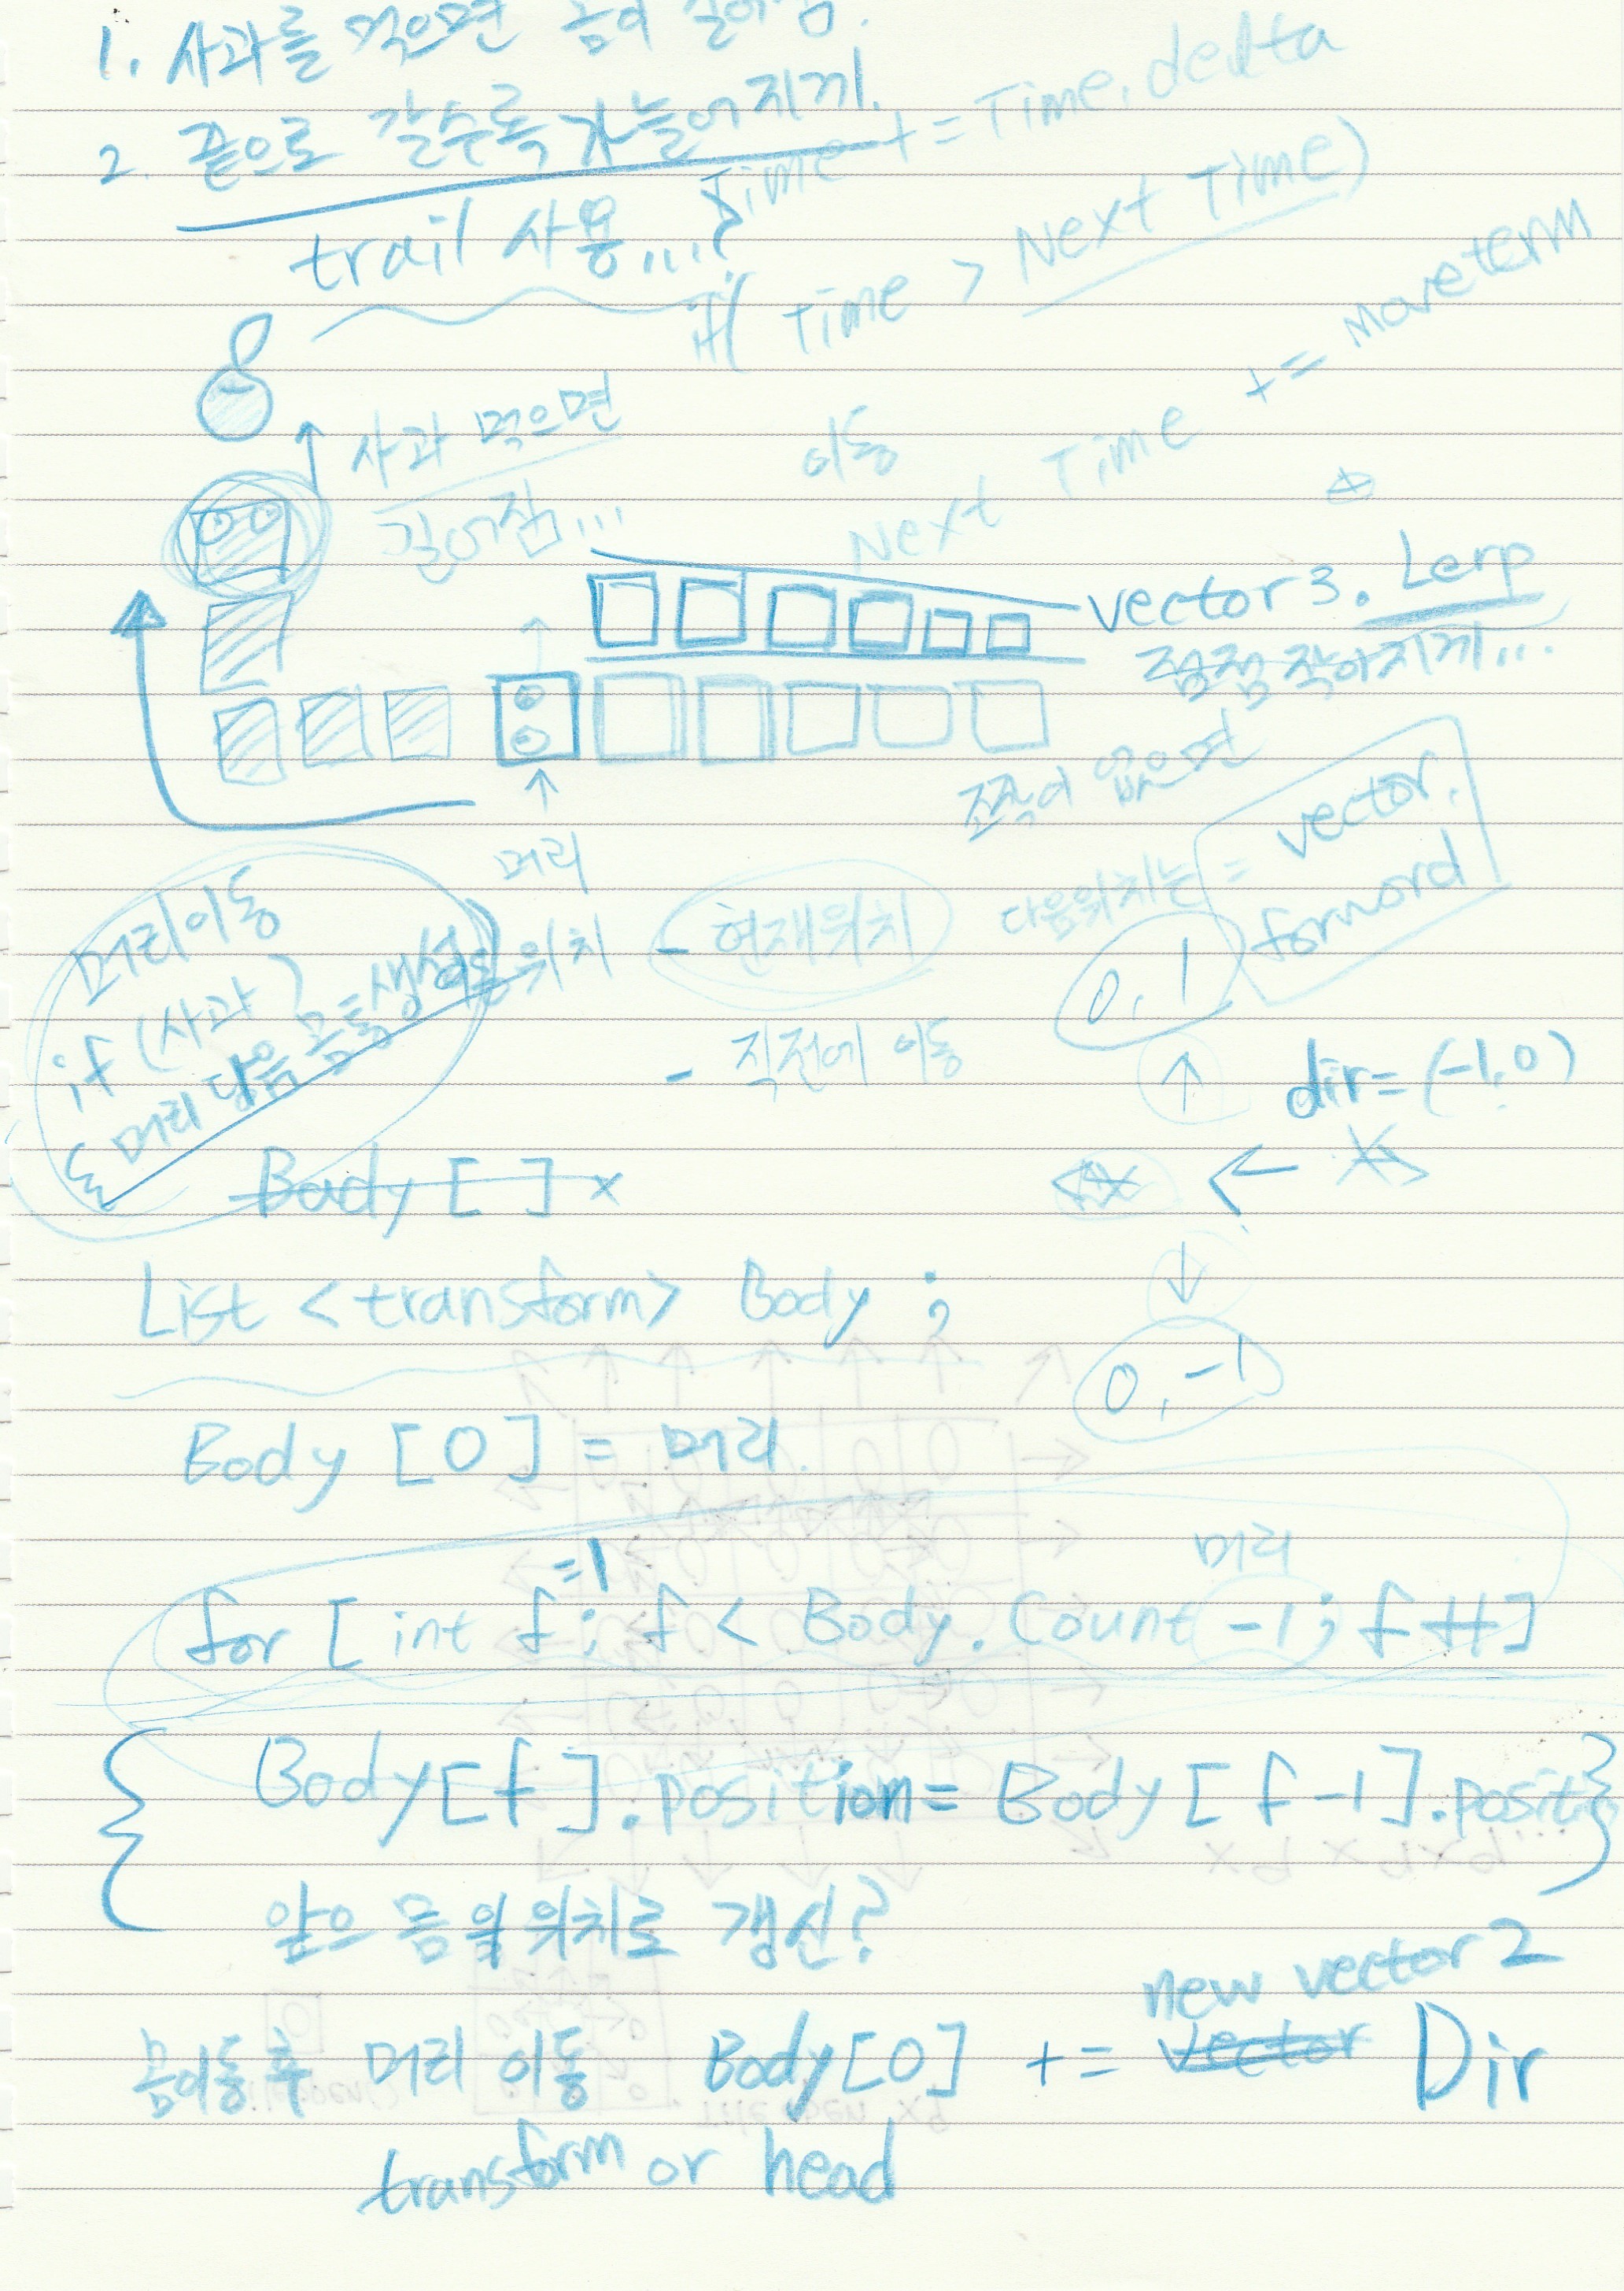 1. 사과를 먹으면 몸이 길어짐.
2. 끝으로 갈수록 가늘어지게.
trail 사용....?
Time += Time.delta
if( Time > Next Time)
이동
Next Time += moveterm
사과 먹으면
길어짐...
vector3. Lerp
점점 작아지게...
머리
조작이 없으면
다음위치는 = vector.
forword
머리이동
if (사과)
{ 머리 다음 몸통생성
위치
- 현재위치
- 직전에 이동
0, 1
dir=(-1,0)
0, -1
Body [ ] x
List <transform> Body ;
Body [0] = 머리.
=1
머리
for [ int f ; f < Body. Count -1 ; f ++]
{ Body[f].position = Body [ f-1].positi }
앞으 몸의 위치로 갱신?
new vector 2
몸이동 후 머리 이동 Body[0] += vector Dir
transform or head